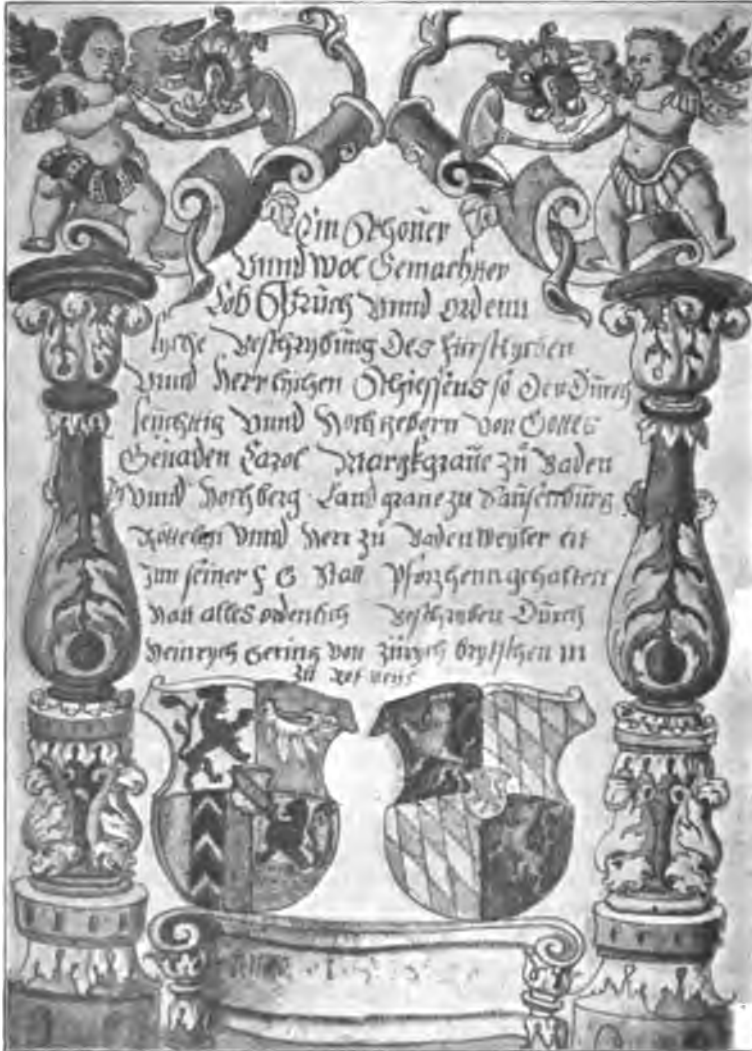 Ein Schoner
Vnnd Wol Gemachtter
Lob Spruch Vnnd ordenn
lyche beschrybung Des furstlychen
Vnnd Herrlychen Schiessens so Der Durch
leuchttig Vnnd Hoch geborn Von Gottes
Genaden Carol Marggraue zu Baden
Vnnd Hochberg Land graue zu Sausenburg
Röttelen Vnnd Herr zu Badenweyler
Inn seiner F G Statt Pforzheim gehalten
Hatt alles ordenlich beschryben Durch
Heinrych Gering Von Zurych
zu